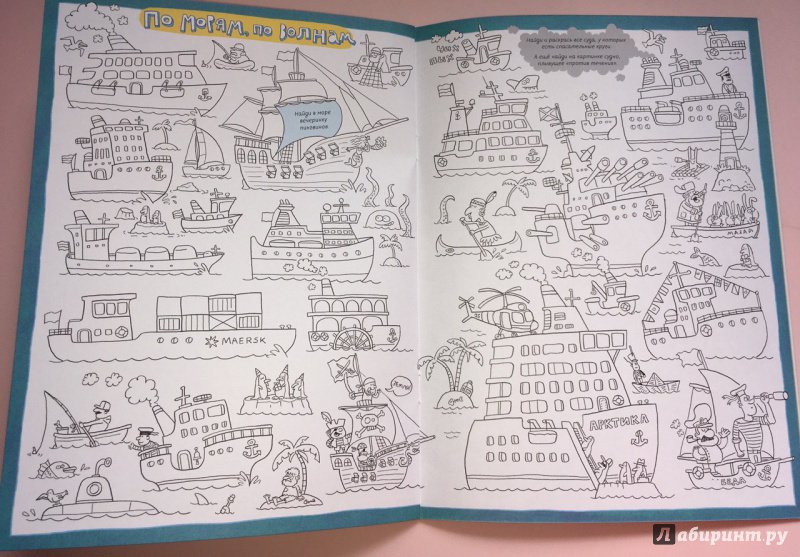 По морям, по волнам
Найди в море
вечеринку
пингвинов.
Найди и раскрась все суда, у которых
есть спасательные круги.
А ещё найди на картинке судно,
плывущее «против течения».
ЧУХ
ЧУХ
МАЗАЙ
MAERSK
АРКТИКА
БЕДА
Лабиринт.ру